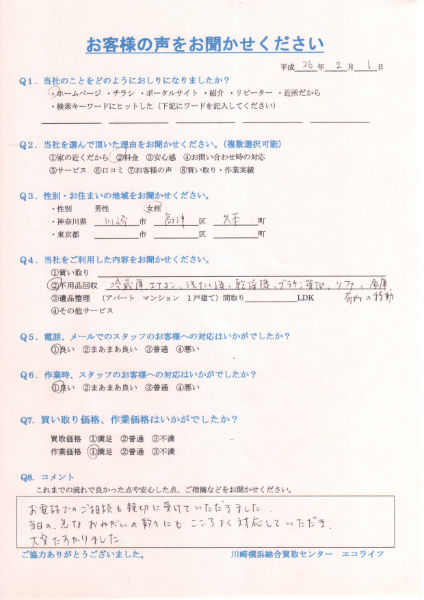 お客様の声をお聞かせください
平成 26 年 2 月 1 日
Q1．当社のことをどのようにおしりになりましたか？
・ホームページ ・チラシ ・ポータルサイト ・紹介 ・リピーター ・近所だから
・検索キーワードにヒットした（下記にワードを記入してください）
Q2．当社を選んで頂いた理由をお聞かせください。（複数選択可能）
①家の近くだから ②料金 ③安心感 ④お問い合わせ時の対応
⑤サービス ⑥口コミ ⑦お客様の声 ⑧買い取り・作業実績
Q3．性別・お住まいの地域をお聞かせください。
・性別 男性 女性
・神奈川県 川崎 市 高津 区 久本 町
・東京都 市 区 町
Q4．当社をご利用した内容をお聞かせください。
①買い取り
②不用品回収 冷蔵庫 エアコン、洗たく機、乾燥機、ブラウン管TV、ソファ、金庫
③遺品整理 （アパート マンション 1戸建て）間取り LDK 室内の移動
④その他サービス
Q5．電話、メールでのスタッフのお客様への対応はいかがでしたか？
①良い ②まあまあ良い ③普通 ④悪い
Q6．作業時、スタッフのお客様への対応はいかがでしたか？
①良い ②まあまあ良い ③普通 ④悪い
Q7．買い取り価格、作業価格はいかがでしたか？
買取価格 ①満足 ②普通 ③不満
作業価格 ①満足 ②普通 ③不満
Q8．コメント
これまでの流れで良かった点や安心した点、ご指摘などをお聞かせください。
お電話でのご相談も親切に受けていただきました。
当日の、急な おねがいの数々にも こころよく対応していただき、
大変たすかりました。
ご協力ありがとうございました。 川崎横浜総合買取センター エコライフ